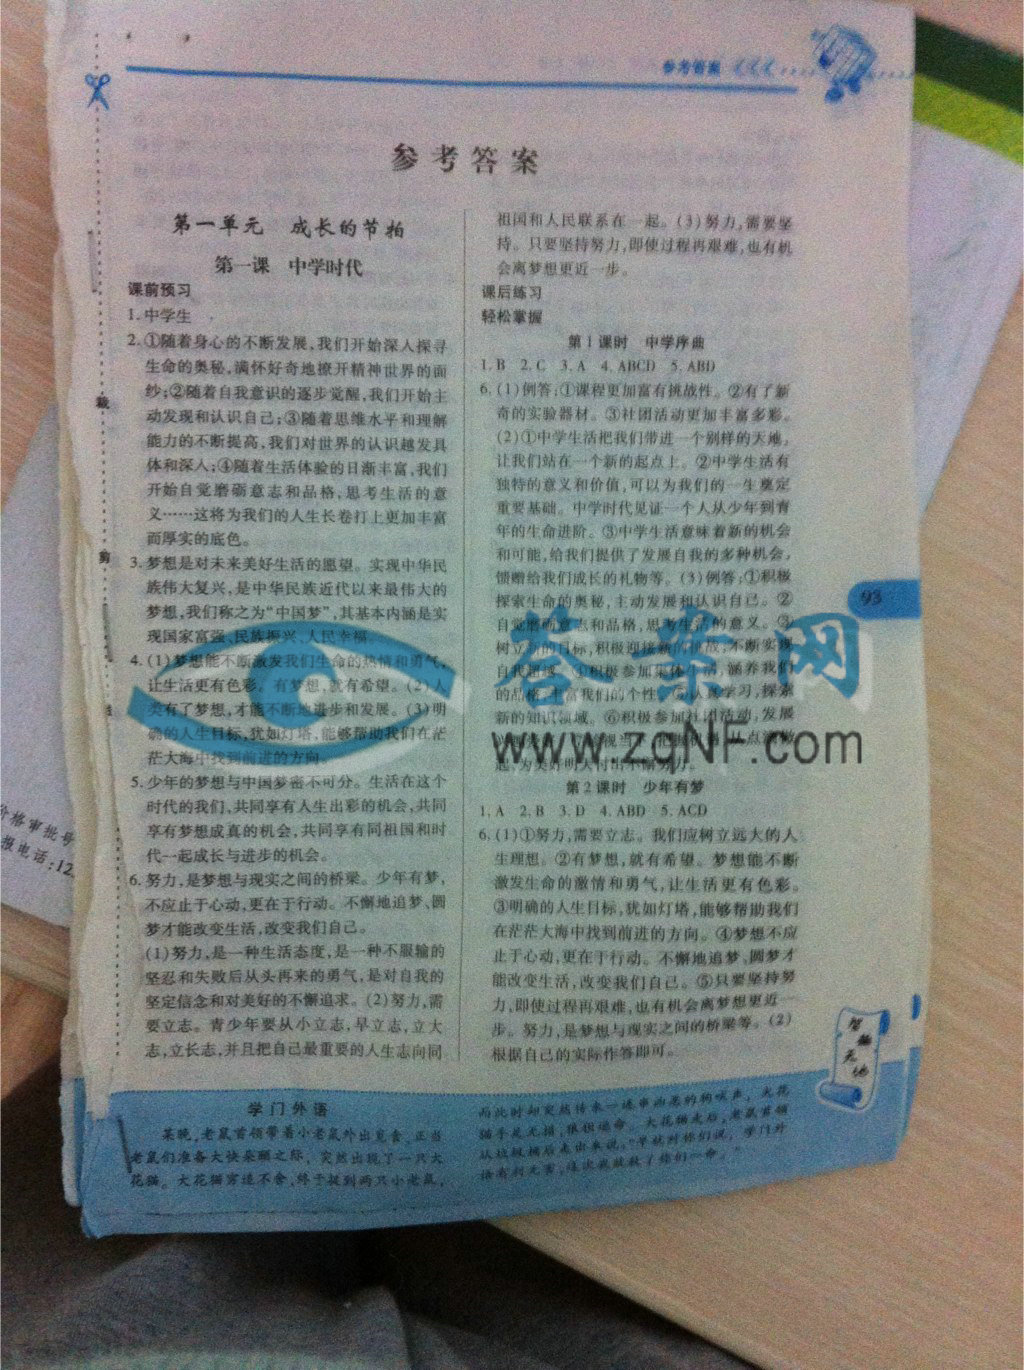 参考答案
参考答案
第一单元 成长的节拍
第一课 中学时代
课前预习
1.中学生
2.①随着身心的不断发展,我们开始深入探寻
生命的奥秘,满怀好奇地撩开精神世界的面
纱;②随着自我意识的逐步觉醒,我们开始主
动发现和认识自己;③随着思维水平和理解
能力的不断提高,我们对世界的认识越发具
体和深入;④随着生活体验的日渐丰富,我们
开始自觉磨砺意志和品格,思考生活的意
义……这将为我们的人生长卷打上更加丰富
而厚实的底色。
3.梦想是对未来美好生活的愿望。实现中华民
族伟大复兴,是中华民族近代以来最伟大的
梦想,我们称之为“中国梦”,其基本内涵是实
现国家富强、民族振兴、人民幸福。
4.(1)梦想能不断激发我们生命的热情和勇气,
让生活更有色彩。有梦想,就有希望。(2)人
类有了梦想,才能不断地进步和发展。(3)明
确的人生目标,犹如灯塔,能够帮助我们在茫
茫大海中找到前进的方向。
5.少年的梦想与中国梦密不可分。生活在这个
时代的我们,共同享有人生出彩的机会,共同
享有梦想成真的机会,共同享有同祖国和时
代一起成长与进步的机会。
6.努力,是梦想与现实之间的桥梁。少年有梦,
不应止于心动,更在于行动。不懈地追梦、圆
梦才能改变生活,改变我们自己。
(1)努力,是一种生活态度,是一种不服输的
坚忍和失败后从头再来的勇气,是对自我的
坚定信念和对美好的不懈追求。(2)努力,需
要立志。青少年要从小立志,早立志,立大
志,立长志,并且把自己最重要的人生志向同
祖国和人民联系在一起。(3)努力,需要坚
持。只要坚持努力,即使过程再艰难,也有机
会离梦想更近一步。
课后练习
轻松掌握
第1课时 中学序曲
1.B 2.C 3.A 4.ABCD 5.ABD
6.(1)例答:①课程更加富有挑战性。②有了新
奇的实验器材。③社团活动更加丰富多彩。
(2)①中学生活把我们带进一个别样的天地,
让我们站在一个新的起点上。②中学生活有
独特的意义和价值,可以为我们的一生奠定
重要基础。中学时代见证一个人从少年到青
年的生命进阶。③中学生活意味着新的机会
和可能,给我们提供了发展自我的多种机会,
馈赠给我们成长的礼物等。(3)例答:①积极
探索生命的奥秘,主动发展和认识自己。②
自觉磨砺意志和品格,思考生活的意义。③
树立新的目标,积极迎接新的挑战,不断实现
自我超越。④积极参加集体生活,涵养我们
的品格,丰富我们的个性。⑤认真学习,探索
新的知识领域。⑥积极参加社团活动,发展
起,为美好明天付出不懈努力。
第2课时 少年有梦
1.A 2.B 3.D 4.ABD 5.ACD
6.(1)①努力,需要立志。我们应树立远大的人
生理想。②有梦想,就有希望。梦想能不断
激发生命的激情和勇气,让生活更有色彩。
③明确的人生目标,犹如灯塔,能够帮助我们
在茫茫大海中找到前进的方向。④梦想不应
止于心动,更在于行动。不懈地追梦、圆梦才
能改变生活,改变我们自己。⑤只要坚持努
力,即使过程再艰难,也有机会离梦想更近一
步。努力,是梦想与现实之间的桥梁等。(2)
根据自己的实际作答即可。
93
裁
剪
答案网
www.zqNF.com
价格审批号
报电话:12
智趣天地
学门外语
某晚,老鼠首领带着小老鼠外出觅食,正当
老鼠们准备大快朵颐之际,突然出现了一只大
花猫。大花猫穷追不舍,终于捉到两只小老鼠,
而此时却突然传来一连串凶恶的狗吠声,大花
猫手足无措,狼狈逃命。大花猫走后,老鼠首领
从垃圾桶后走出来说:“早就对你们说,学门外
语有利无害,这次我就救了你们一命。”